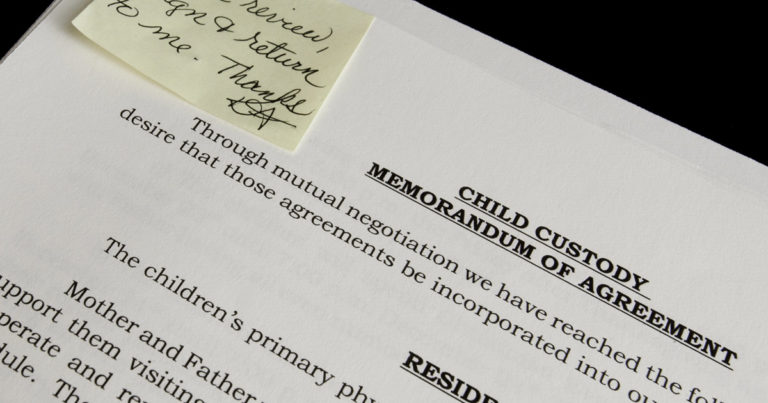 review,
& return
to me. Thanks
CHILD CUSTODY
MEMORANDUM OF AGREEMENT
Through mutual negotiation we have reached the
desire that those agreements be incorporated into
The children's primary
Mother and Father
support them visiting
and
The